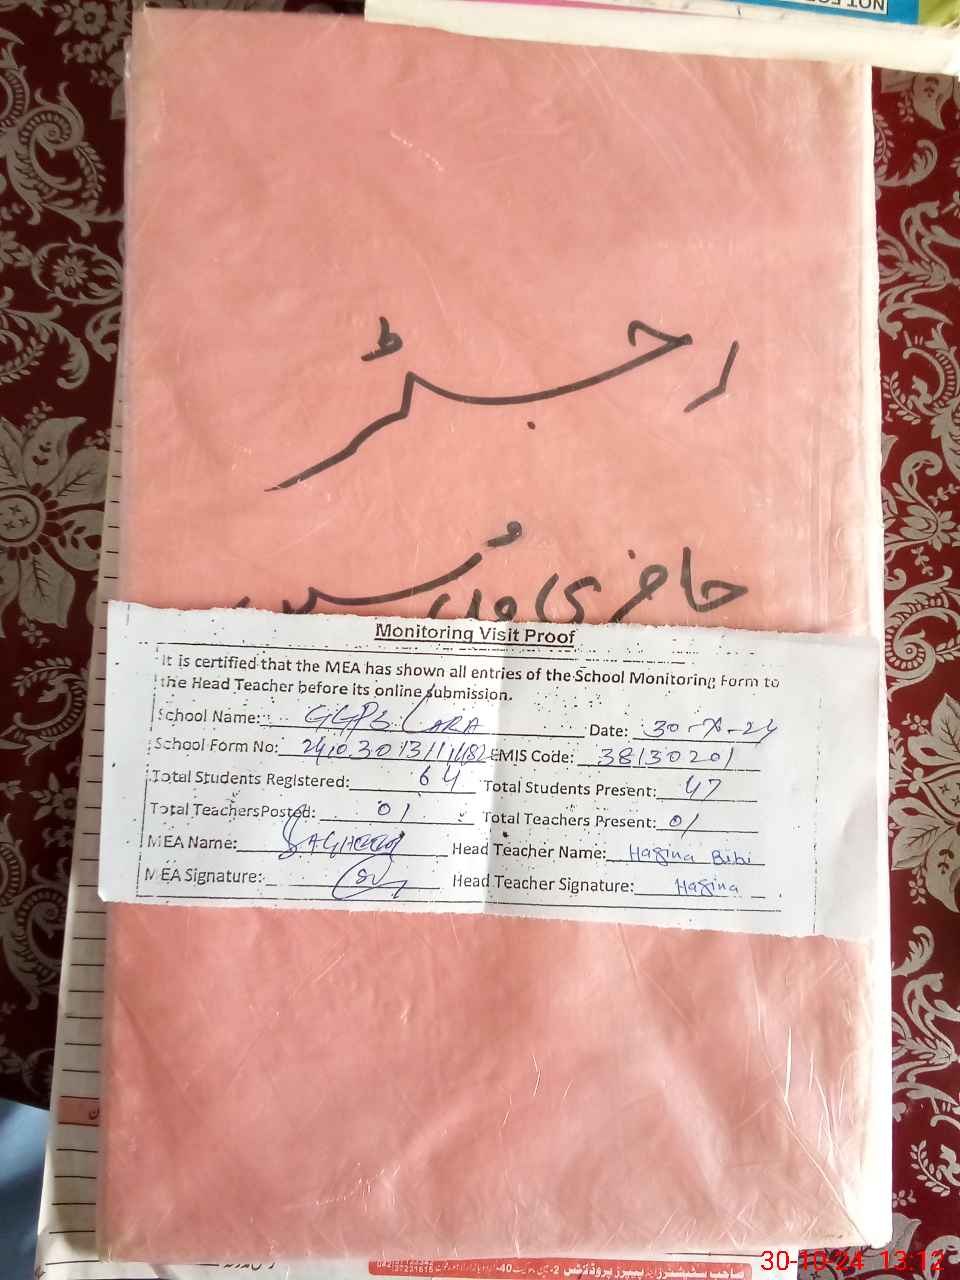 NOT FOR
رجٹر
حاضری مدرسین
Monitoring Visit Proof
It is certified that the MEA has shown all entries of the School Monitoring Form to
the Head Teacher before its online submission.
School Name: GGPS LARA Date: 30-X-24
School Form No: EMIS Code: 38130201
Total Students Registered: 64 Total Students Present: 47
Total Teachers Posted: 01 Total Teachers Present: 01
MEA Name: Head Teacher Name: Hasina Bibi
MEA Signature: Head Teacher Signature: Hasina
30-10-24 13:12